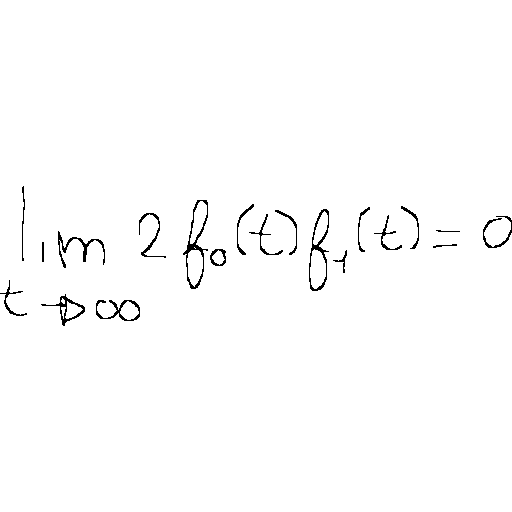 lim 2f₀(t)f₁(t) = 0
t→∞